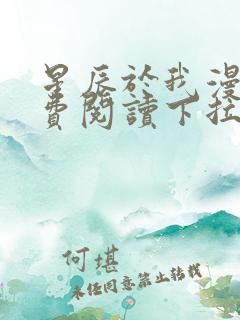 星辰於我漫
費閱讀下拉
何堪
未经同意禁止转载